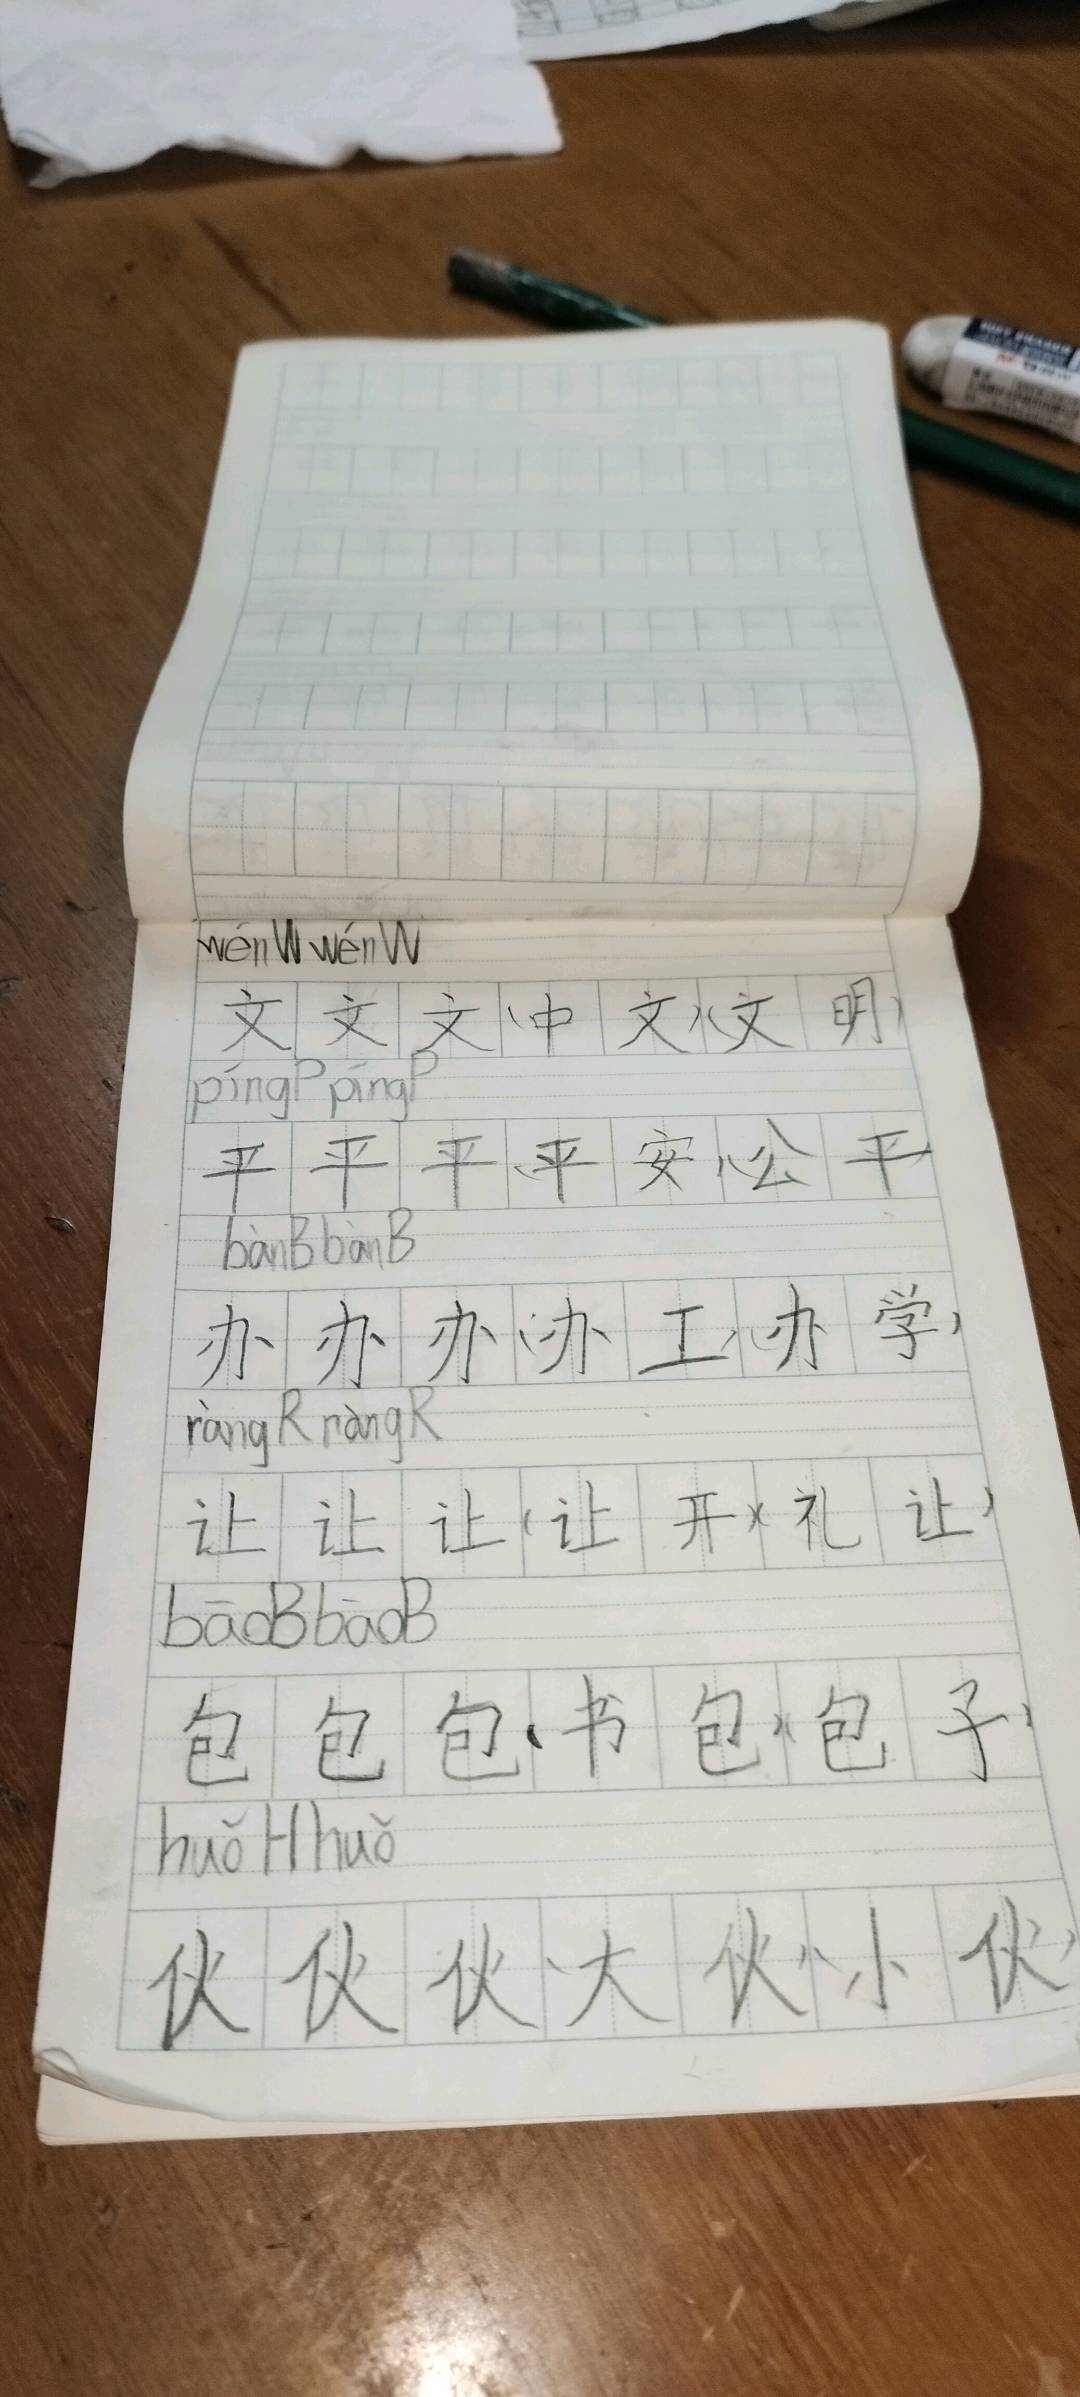 wénWwénW
文文文(中文)(文明)
píngPpíngP
平平平(平安)(公平
bànBbànB
办办办(办工)(办学)
ràngRràngR
让让让(让开)(礼让)
bāoBbāoB
包包包(书包)(包子)
huǒHhuǒ
伙伙伙(大伙)(小伙)